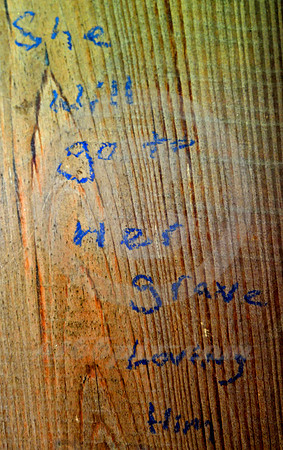 She
will
go to
Her
grave
Loving
Him